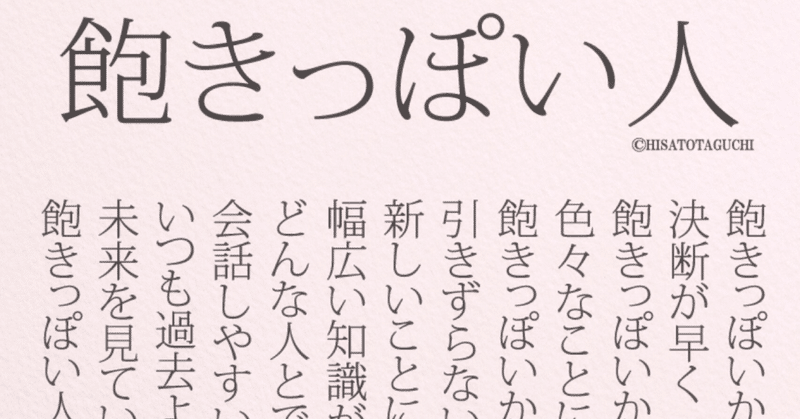 飽きっぽい人
©HISATOTAGUCHI
飽きっぽいか
決断が早く
飽きっぽいか
色々なことに
飽きっぽいか
引きずらない
新しいことに
幅広い知識が
どんな人とで
会話しやすい
いつも過去よ
未来を見てい
飽きっぽい人